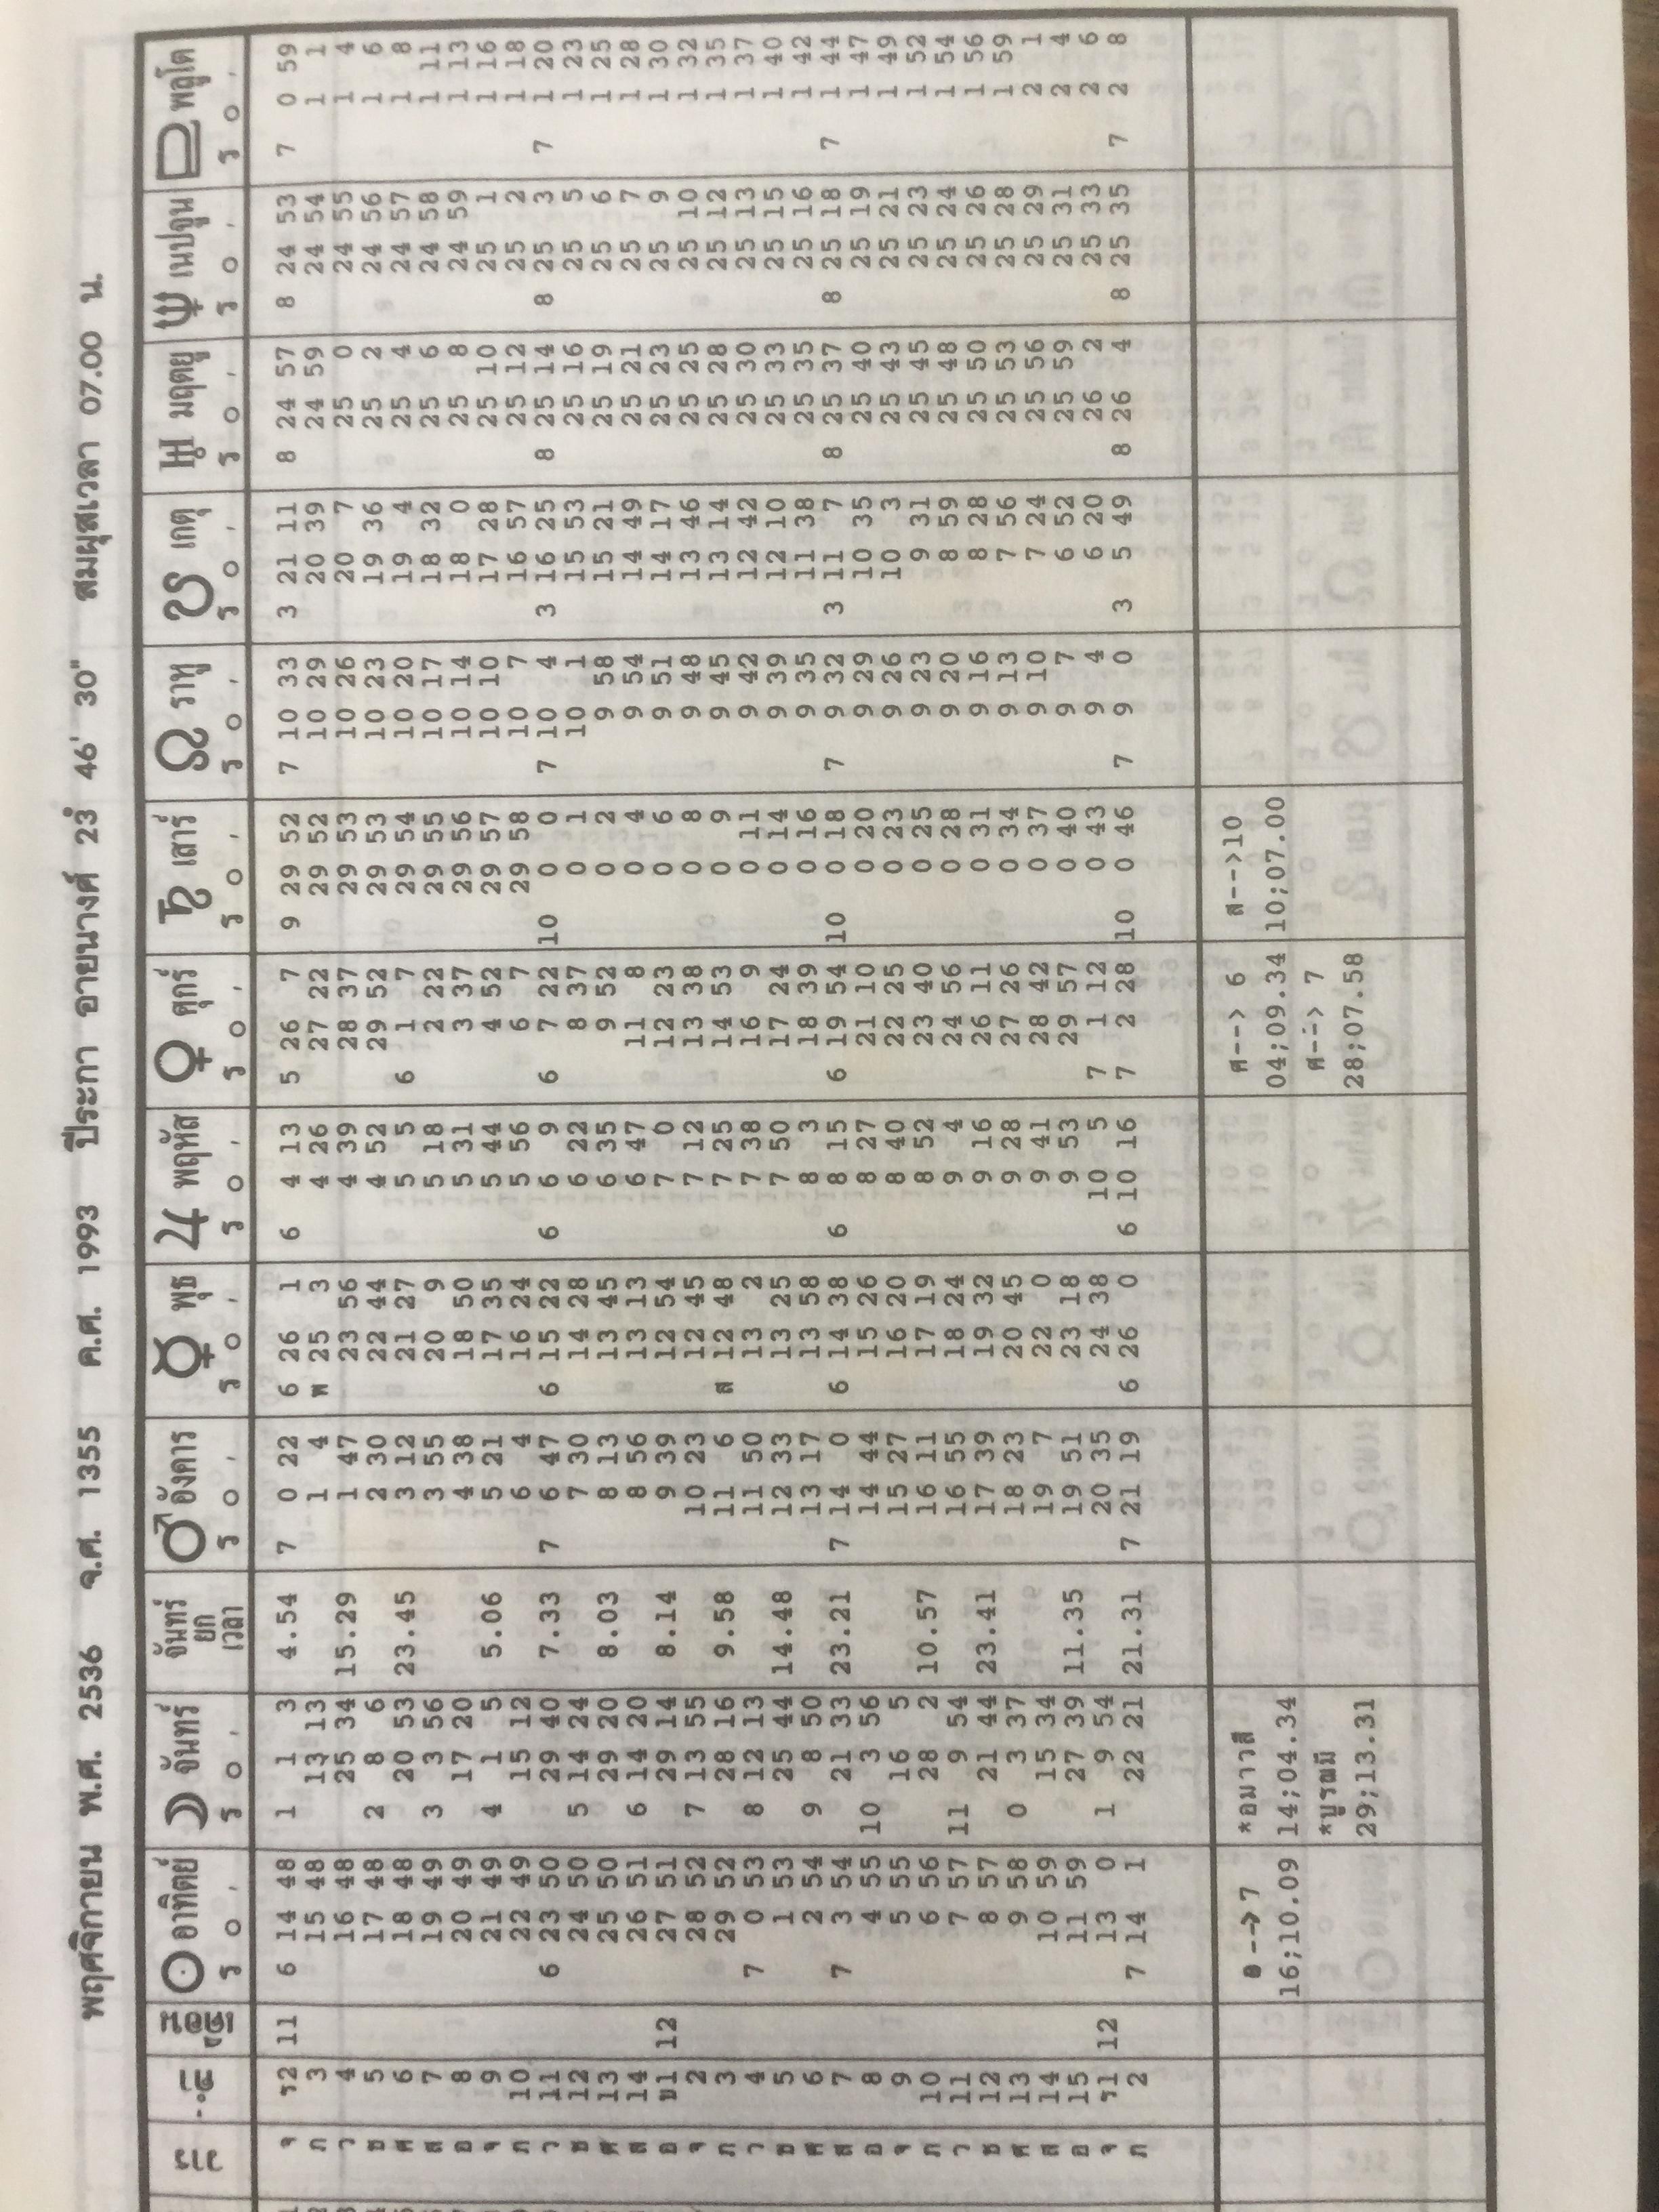 พฤศจิกายน พ.ศ. 2536 จ.ศ. 1355 ค.ศ. 1993 ปีระกา อายนางศ์ 23° 46' 30" สมผุสเวลา 07.00 น.
วาร ดิถี เดือน ☉ อาทิตย์ ☽ จันทร์ จันทร์ ยก เวลา ♂ อังคาร ☿ พุธ ♃ พฤหัส ♀ ศุกร์ ♄ เสาร์ ☊ ราหู ☋ เกตุ ♅ มฤตยู ♆ เนปจูน พลูโต
ร ° ' ร ° ' ร ° ' ร ° ' ร ° ' ร ° ' ร ° ' ร ° ' ร ° ' ร ° ' ร ° ' ร ° '
จ ร2 11 6 14 48 1 1 3 4.54 7 0 22 6 26 1 6 4 13 5 26 7 9 29 52 7 10 33 3 21 11 8 24 57 8 24 53 7 0 59
ภ 3 15 48 13 13 1 4 พ 25 3 4 26 27 22 29 52 10 29 20 39 24 59 24 54 1 1
ว 4 16 48 25 34 15.29 1 47 23 56 4 39 28 37 29 53 10 26 20 7 25 0 24 55 1 4
ช 5 17 48 2 8 6 2 30 22 44 4 52 29 52 29 53 10 23 19 36 25 2 24 56 1 6
ศ 6 18 48 20 53 23.45 3 12 21 27 5 5 6 1 7 29 54 10 20 19 4 25 4 24 57 1 8
ส 7 19 49 3 3 56 3 55 20 9 5 18 2 22 29 55 10 17 18 32 25 6 24 58 1 11
อ 8 20 49 17 20 4 38 18 50 5 31 3 37 29 56 10 14 18 0 25 8 24 59 1 13
จ 9 21 49 4 1 5 5.06 5 21 17 35 5 44 4 52 29 57 10 10 17 28 25 10 25 1 1 16
ภ 10 22 49 15 12 6 4 16 24 5 56 6 7 29 58 10 7 16 57 25 12 25 2 1 18
ว 11 6 23 50 29 40 7.33 7 6 47 6 15 22 6 6 9 6 7 22 10 0 0 7 10 4 3 16 25 8 25 14 8 25 3 7 1 20
ช 12 24 50 5 14 24 7 30 14 28 6 22 8 37 0 1 10 1 15 53 25 16 25 5 1 23
ศ 13 25 50 29 20 8.03 8 13 13 45 6 35 9 52 0 2 9 58 15 21 25 19 25 6 1 25
ส 14 26 51 6 14 20 8 56 13 13 6 47 11 8 0 4 9 54 14 49 25 21 25 7 1 28
อ ข1 12 27 51 29 14 8.14 9 39 12 54 7 0 12 23 0 6 9 51 14 17 25 23 25 9 1 30
จ 2 28 52 7 13 55 10 23 12 45 7 12 13 38 0 8 9 48 13 46 25 25 25 10 1 32
ภ 3 29 52 28 16 9.58 11 6 ส 12 48 7 25 14 53 0 9 9 45 13 14 25 28 25 12 1 35
ว 4 7 0 53 8 12 13 11 50 13 2 7 38 16 9 0 11 9 42 12 42 25 30 25 13 1 37
ช 5 1 53 25 44 14.48 12 33 13 25 7 50 17 24 0 14 9 39 12 10 25 33 25 15 1 40
ศ 6 2 54 9 8 50 13 17 13 58 8 3 18 39 0 16 9 35 11 38 25 35 25 16 1 42
ส 7 7 3 54 21 33 23.21 7 14 0 6 14 38 6 8 15 6 19 54 10 0 18 7 9 32 3 11 7 8 25 37 8 25 18 7 1 44
อ 8 4 55 10 3 56 14 44 15 26 8 27 21 10 0 20 9 29 10 35 25 40 25 19 1 47
จ 9 5 55 16 5 15 27 16 20 8 40 22 25 0 23 9 26 10 3 25 43 25 21 1 49
ภ 10 6 56 28 2 10.57 16 11 17 19 8 52 23 40 0 25 9 23 9 31 25 45 25 23 1 52
ว 11 7 57 11 9 54 16 55 18 24 9 4 24 56 0 28 9 20 8 59 25 48 25 24 1 54
ช 12 8 57 21 44 23.41 17 39 19 32 9 16 26 11 0 31 9 16 8 28 25 50 25 26 1 56
ศ 13 9 58 0 3 37 18 23 20 45 9 28 27 26 0 34 9 13 7 56 25 53 25 28 1 59
ส 14 10 59 15 34 19 7 22 0 9 41 28 42 0 37 9 10 7 24 25 56 25 29 2 1
อ 15 11 59 27 39 11.35 19 51 23 18 9 53 29 57 0 40 9 7 6 52 25 59 25 31 2 4
จ ร1 12 13 0 1 9 54 20 35 24 38 10 5 7 1 12 0 43 9 4 6 20 26 2 25 33 2 6
ภ 2 7 14 1 22 21 21.31 7 21 19 6 26 0 6 10 16 7 2 28 10 0 46 7 9 0 3 5 49 8 26 4 8 25 35 7 2 8
อ-->7 *อมาวสี ศ--> 6 ส-->10
16;10.09 14;04.34 04;09.34 10;07.00
*บูรณมี ศ--> 7
29;13.31 28;07.58